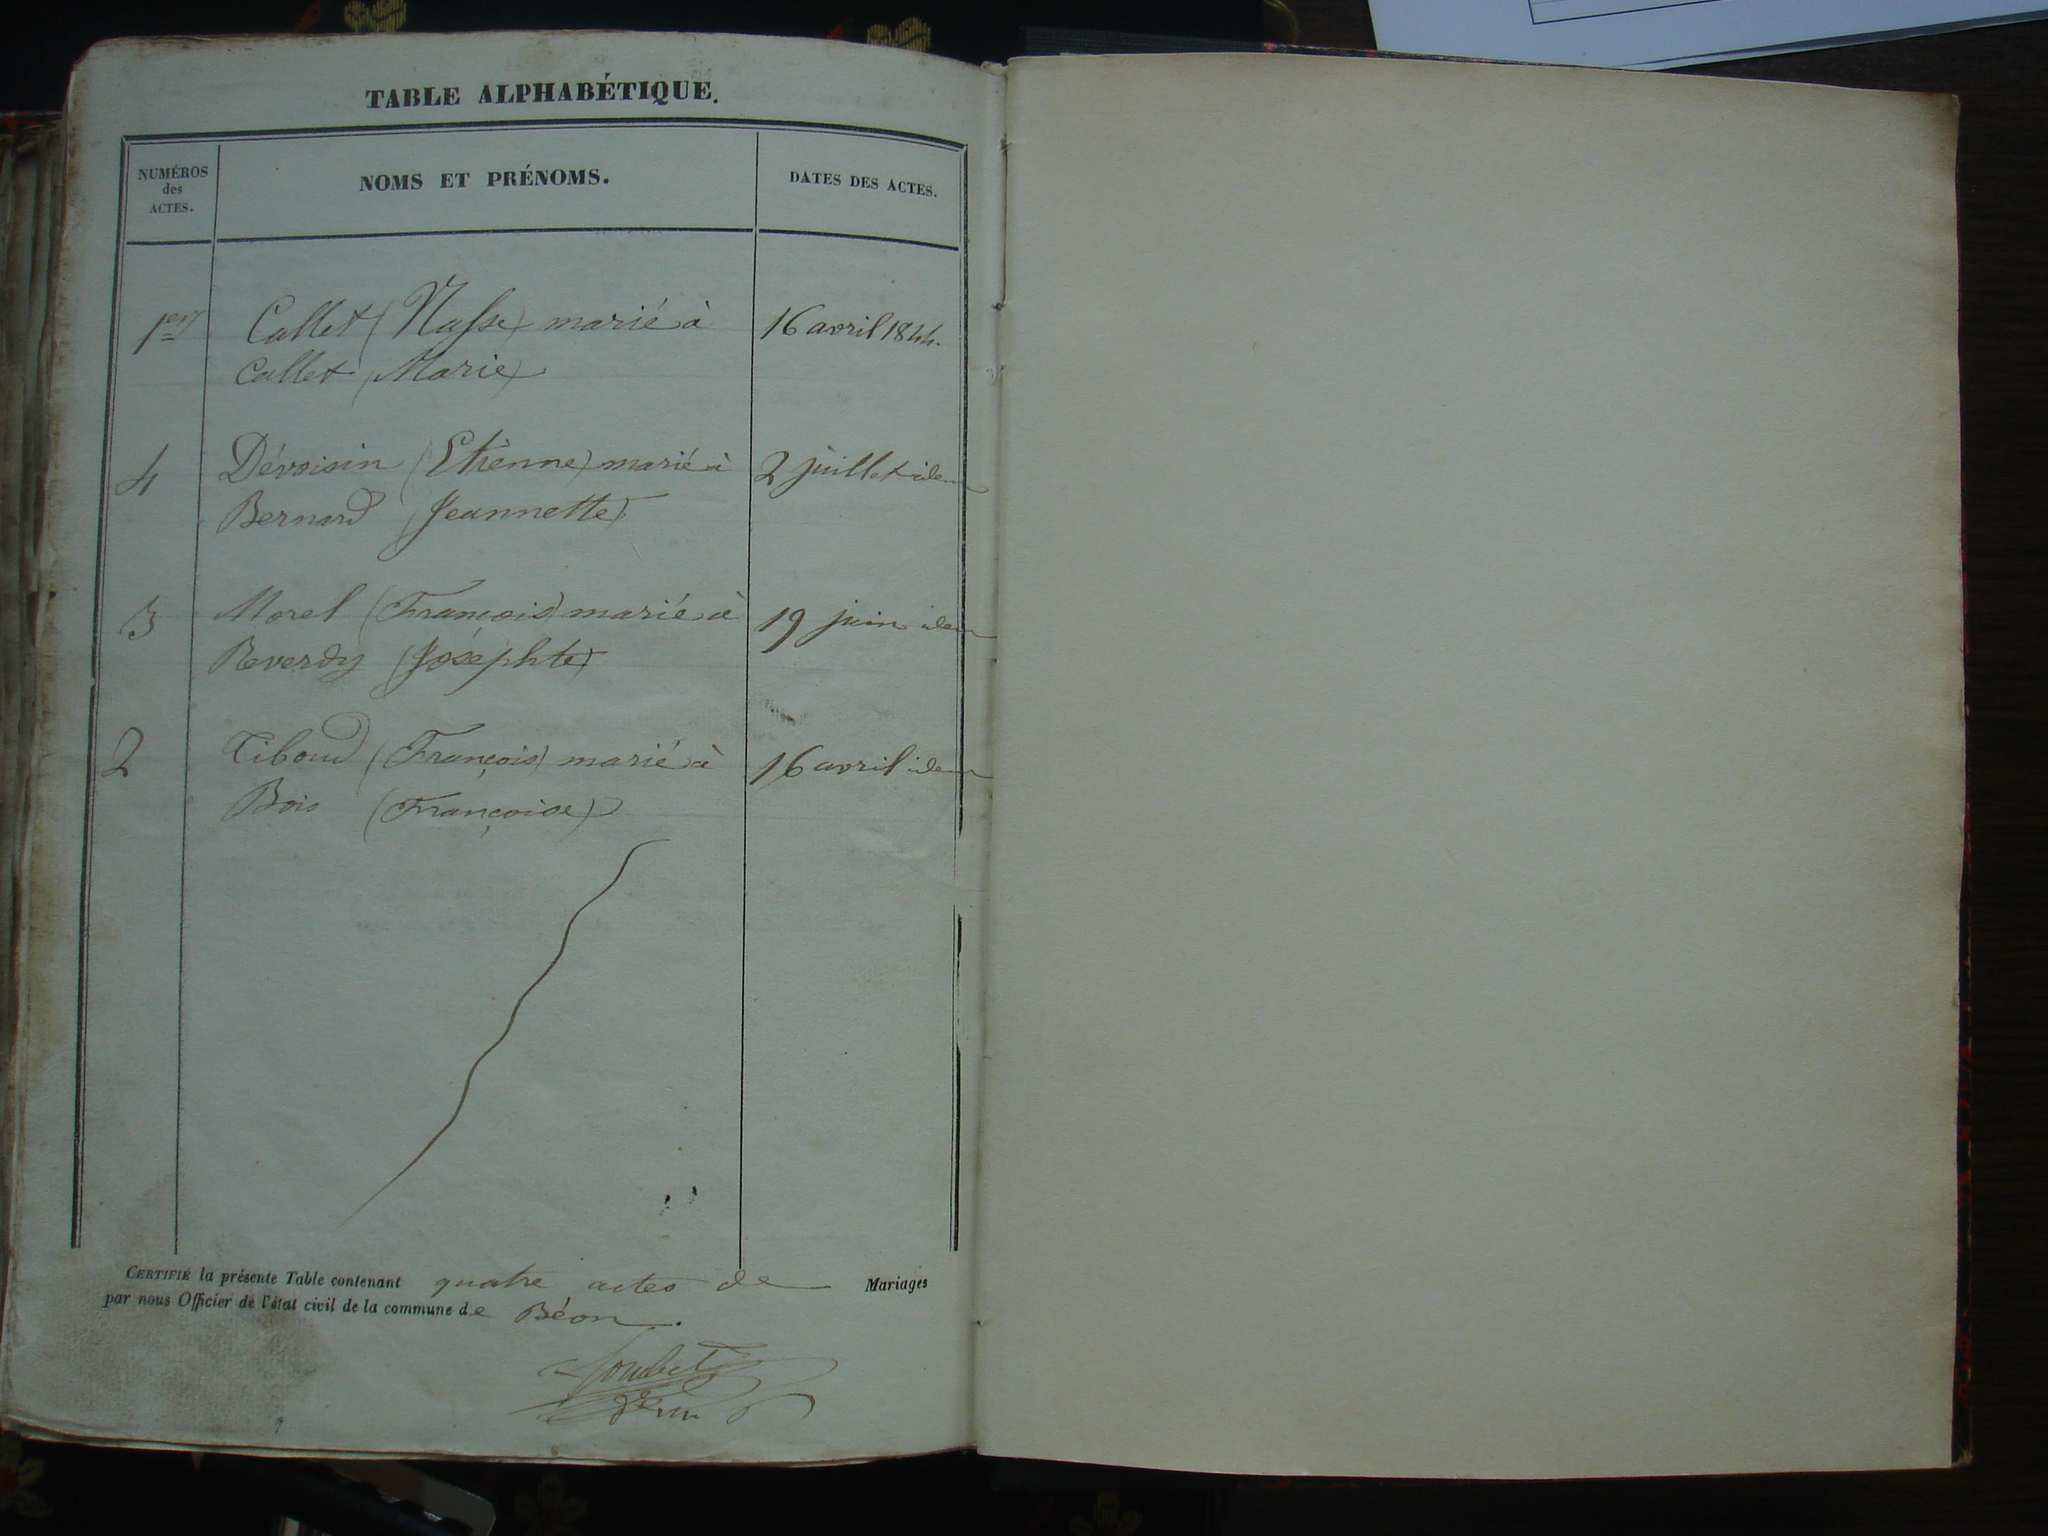 TABLE ALPHABÉTIQUE.
NUMÉROS
des
ACTES.
NOMS ET PRÉNOMS.
DATES DES ACTES.
1er Callet ( ) marié à 16 avril 1844.
Callet (Marie)
4 Dévoisin (Etiènne) marié à 2 juillet idem
Bernard (Jeannette)
3 Morel (François) marié à 19 juin idem
Reverdy (Joséphte)
2 Tiboud (François) marié à 16 avril idem
Bois (Françoise)
CERTIFIÉ la présente Table contenant quatre actes de Mariages
par nous Officier de l'état civil de la commune de Béon.